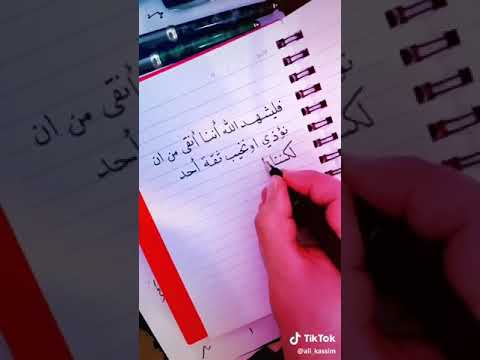 فليشهد الله أننا أنقى من ان
نؤذي او نخيب ثقة أحد
لكننا
TikTok
@ali_kassim